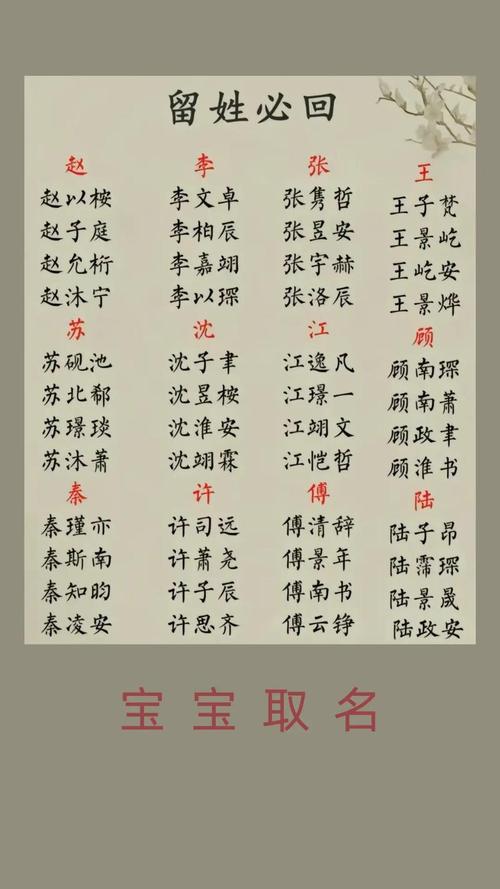 留姓必回
赵 李 张 王
赵以桉 李文卓 张隽哲 王子梵
赵子庭 李柏辰 张昱安 王景屹
赵允桁 李嘉翊 张宇赫 王屹安
赵沐宁 李以琛 张洛辰 王景烨
苏 沈 江 顾
苏砚池 沈子聿 江逸凡 顾南琛
苏北郗 沈昱桉 江璟一 顾南萧
苏璟琰 沈淮安 江翊文 顾政聿
苏沐萧 沈翊霖 江恺哲 顾淮书
秦 许 傅 陆
秦瑾亦 许司远 傅清辞 陆子昂
秦斯南 许萧尧 傅景年 陆霈琛
秦知昀 许子辰 傅南书 陆景晟
秦凌安 许思齐 傅云铮 陆政安
宝宝取名